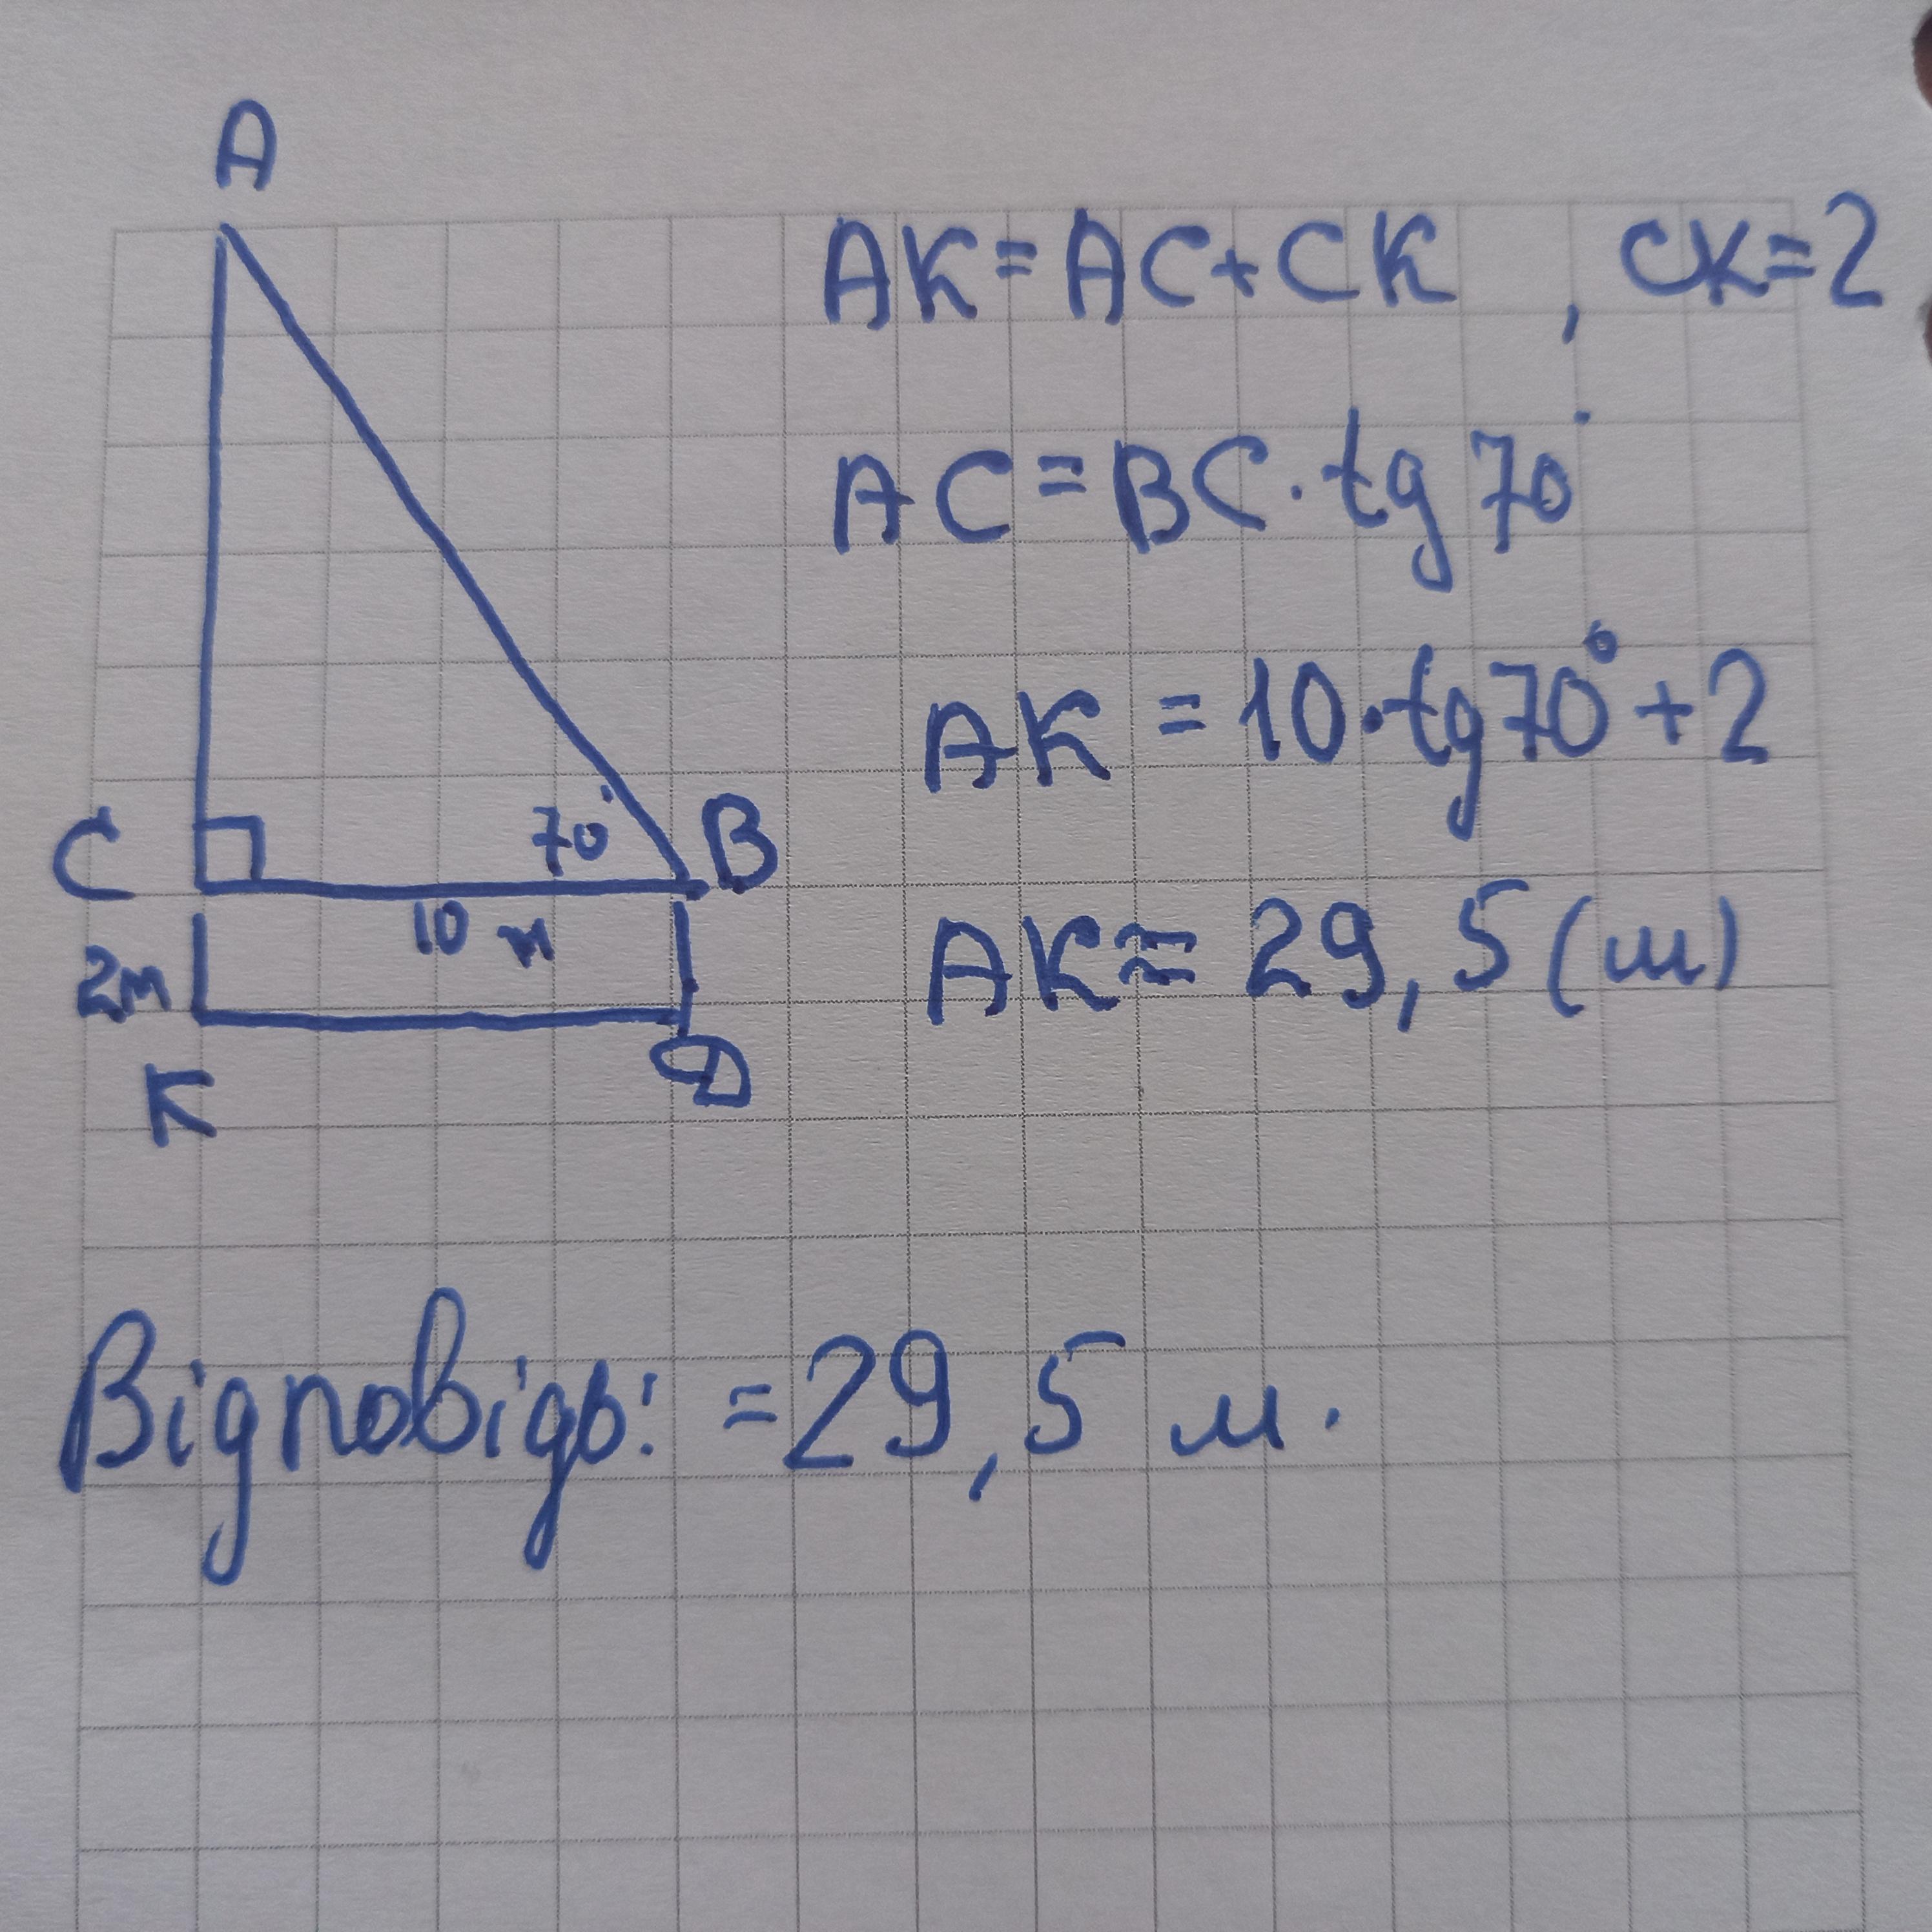 A
AK = AC + CK , CK = 2
AC = BC · tg 70°
AK = 10 · tg 70° + 2
C
70°
B
10 м
2м
AK ≈ 29,5 (м)
K
D
Відповідь: = 29,5 м.